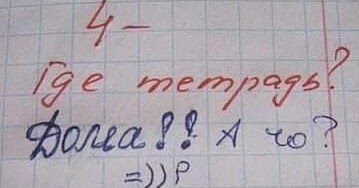 4-
Где тетрадь?
Дома!! А чо?
=))P